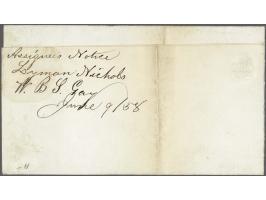 Assignees Notice
Lyman Nichols
W. B. S. Gay
June 9/58